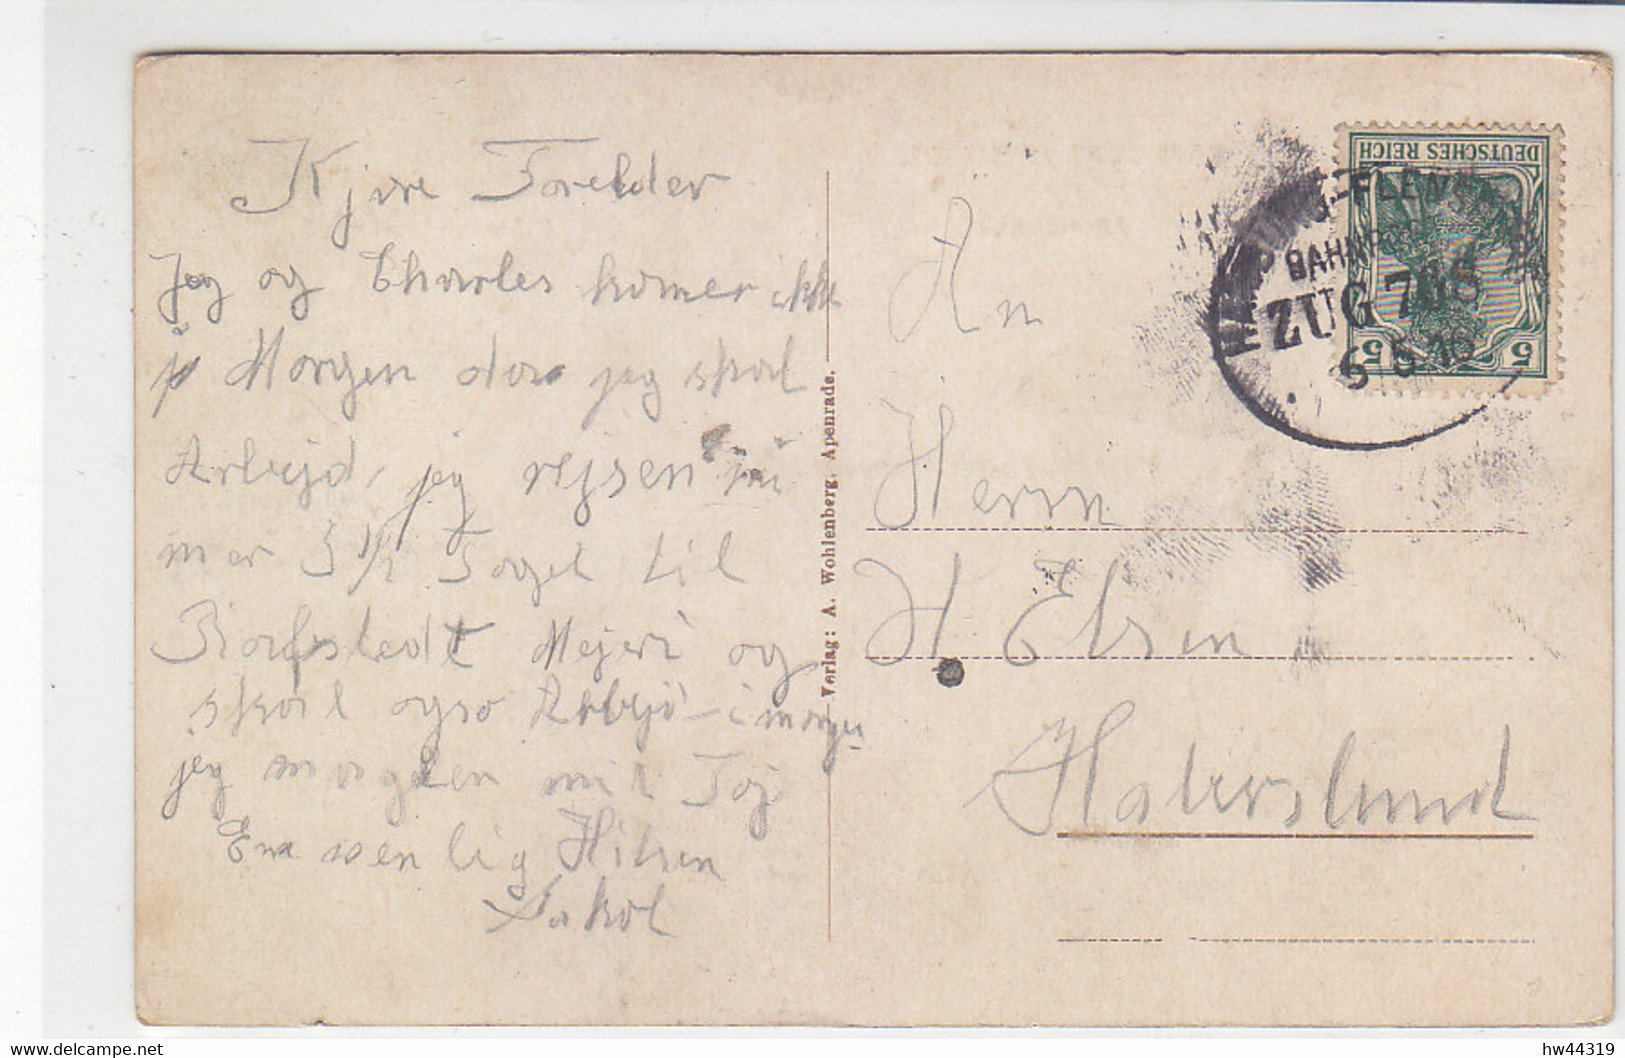 Kjære Forelder
Jeg og Charles komer ikke
på Morgen da jeg skal
Arbejd, jeg rejsen nu
mer 3 1/2 Toget til
stedt Mejeri og
skal ogso Arbejd i morgen
jeg morgden mit Toj
En venlig Hilsen
Jakob
Verlag: A. Wohlenberg, Apenrade.
An
Herrn
H. Elsen
Haberslund
DEUTSCHES REICH
5 5
FLENS
BAHNP
ZUG
5 5 10
hw44319
delcampe.net